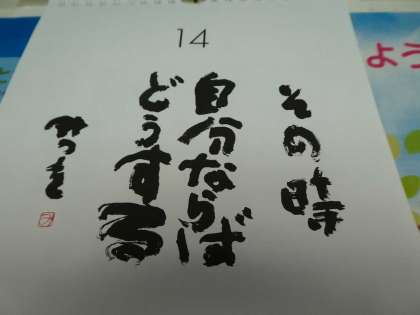 14
その時
自分ならば
どうする
みつを
よう